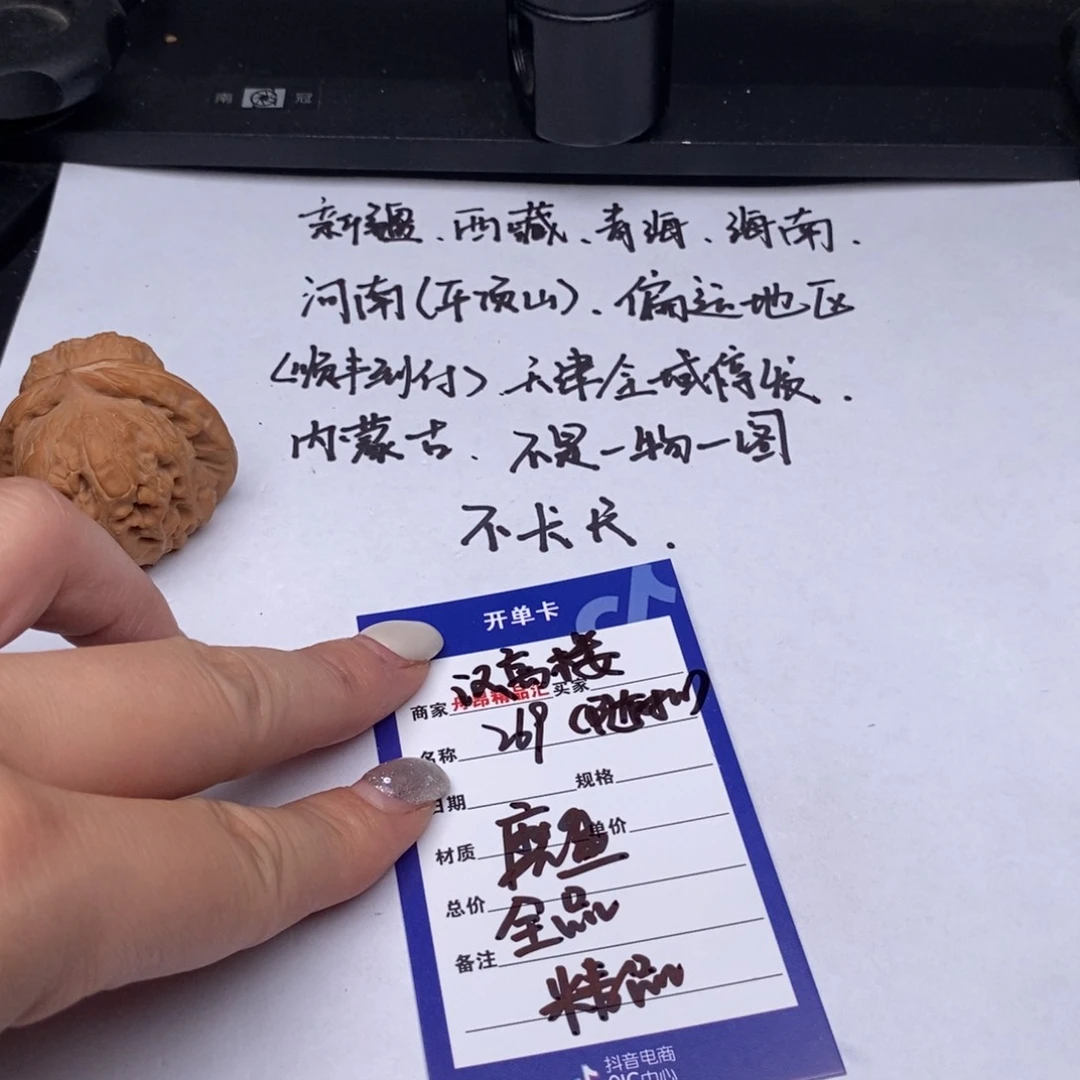 南 冠
新疆、西藏、青海、海南.
河南(平顶山)、偏远地区
(顺丰到付)天津全域停发.
内蒙古、不是一物一图
不卡尺.
开单卡
汉高楼
商家 丹昂精品汇 买家
269
名称
日期 规格
材质 单价
总价 全品
备注
精品
抖音电商
QIC中心